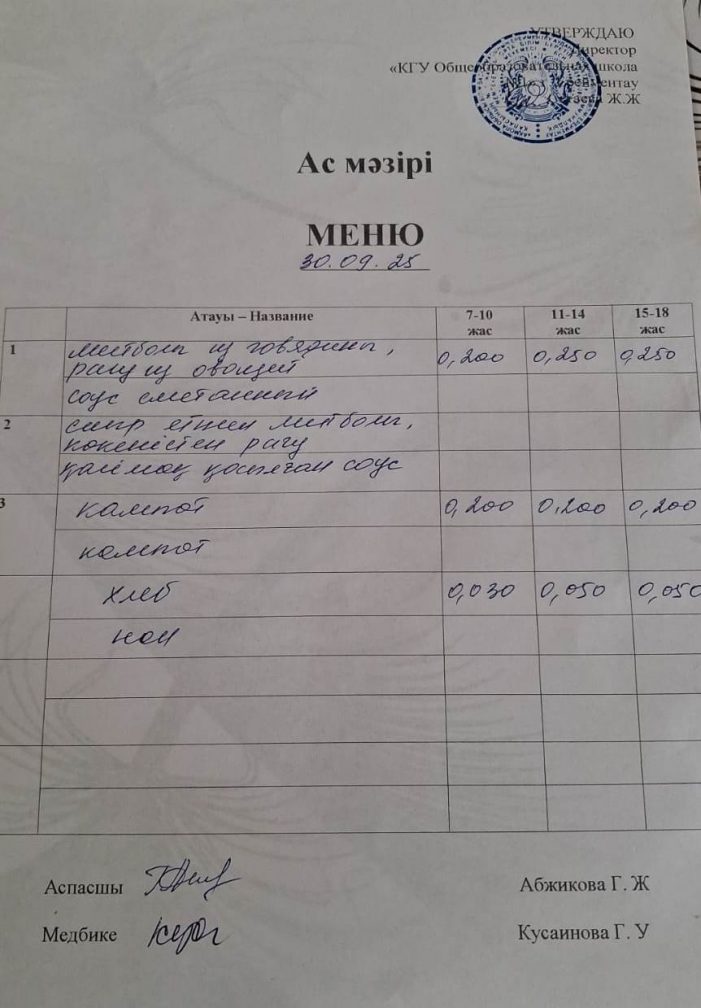 УТВЕРЖДАЮ
Директор
«КГУ Общеобразовательная школа
Ж.Ж
Ас мәзірі
МЕНЮ
30.09.25
Атауы – Название 7-10 жас 11-14 жас 15-18 жас
1 митболы из говядины, 0,200 0,250 0,250
рагу из овощей
соус сметанный
2 сиыр етінен митболы,
көкөністен рагу
қаймақ қосылған соус
3 кампот 0,200 0,200 0,200
компот
хлеб 0,030 0,050 0,050
нан
Аспасшы Абжикова Г. Ж
Медбике Кусаинова Г. У